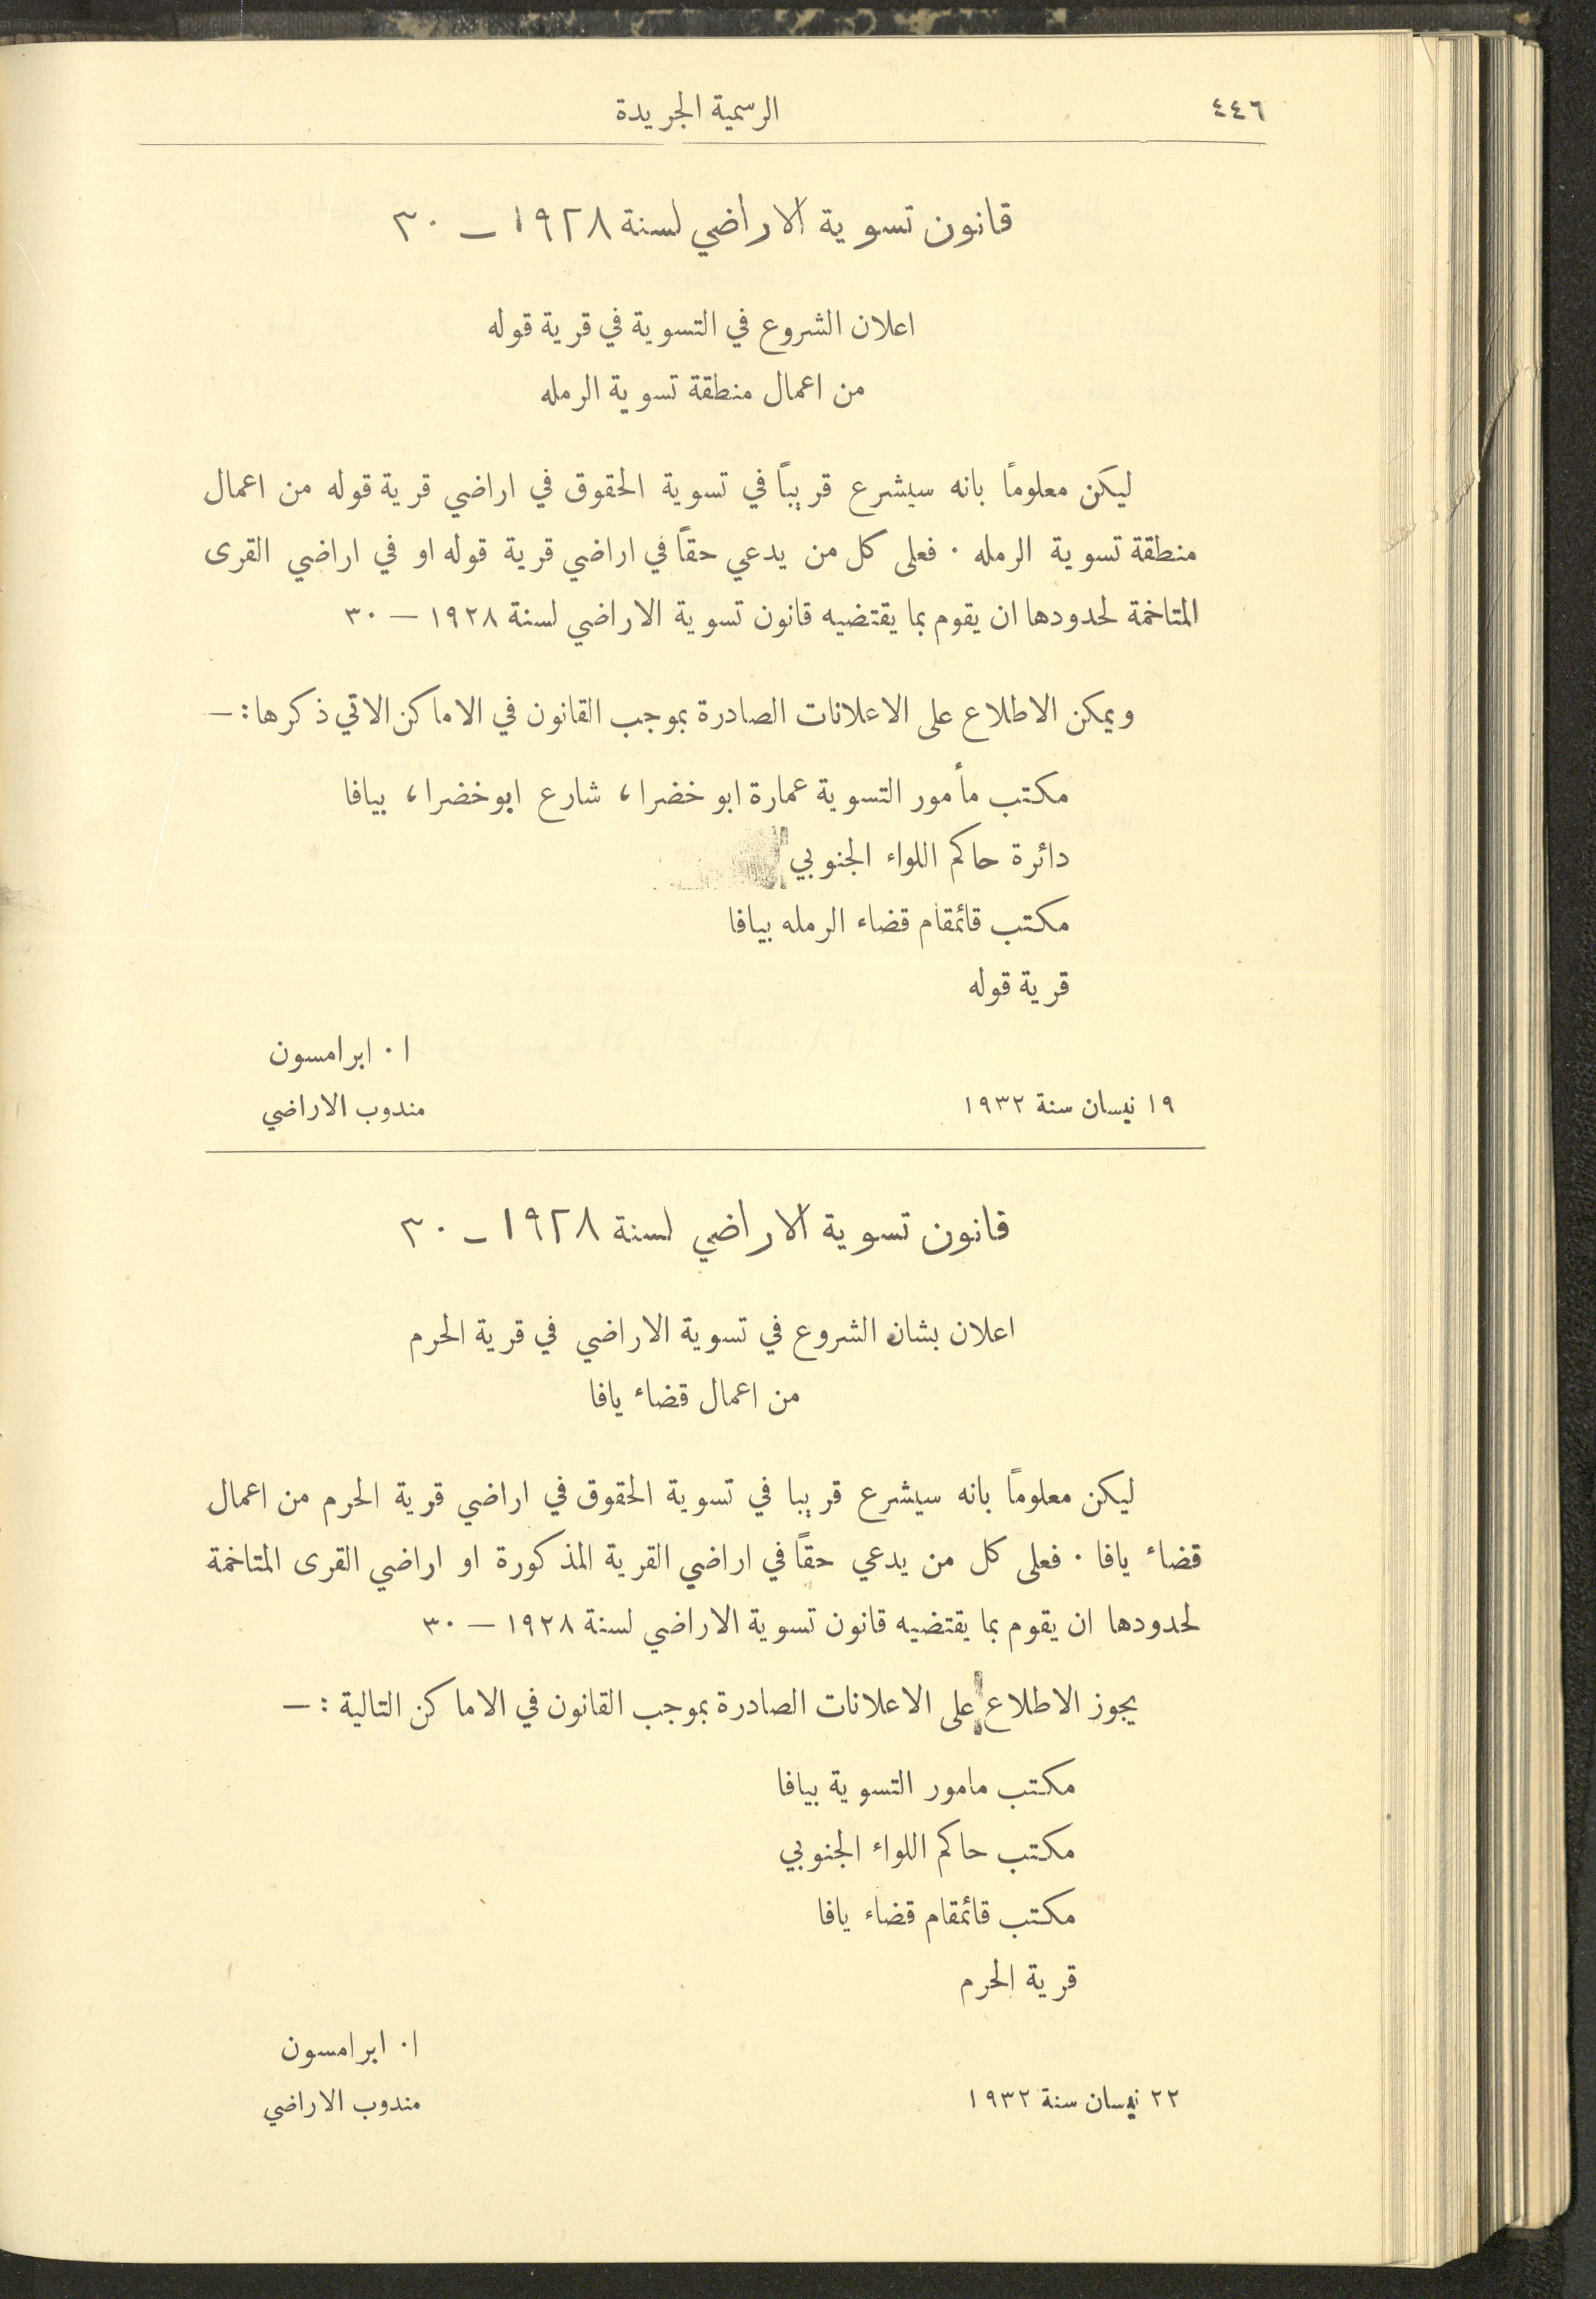 ٤٤٦
الرسمية الجريدة
قانون تسوية الاراضي لسنة ١٩٢٨ – ٣٠
اعلان الشروع في التسوية في قرية قوله
من اعمال منطقة تسوية الرمله
ليكن معلوماً بانه سيشرع قريباً في تسوية الحقوق في اراضي قرية قوله من اعمال
منطقة تسوية الرمله ٠ فعلى كل من يدعي حقاً في اراضي قرية قوله او في اراضي القرى
المتاخمة لحدودها ان يقوم بما يقتضيه قانون تسوية الاراضي لسنة ١٩٢٨ – ٣٠
ويمكن الاطلاع على الاعلانات الصادرة بموجب القانون في الاماكن الاتي ذكرها : –
مكتب مأمور التسوية عمارة ابو خضرا ، شارع ابوخضرا ، بيافا
دائرة حاكم اللواء الجنوبي
مكتب قائمقام قضاء الرمله بيافا
قرية قوله
ا ٠ ابرامسون
١٩ نيسان سنة ١٩٣٢
مندوب الاراضي
قانون تسوية الاراضي لسنة ١٩٢٨ – ٣٠
اعلان بشان الشروع في تسوية الاراضي في قرية الحرم
من اعمال قضاء يافا
ليكن معلوماً بانه سيشرع قريبا في تسوية الحقوق في اراضي قرية الحرم من اعمال
قضاء يافا ٠ فعلى كل من يدعي حقاً في اراضي القرية المذكورة او اراضي القرى المتاخمة
لحدودها ان يقوم بما يقتضيه قانون تسوية الاراضي لسنة ١٩٢٨ – ٣٠
يجوز الاطلاع على الاعلانات الصادرة بموجب القانون في الاماكن التالية : –
مكتب مامور التسوية بيافا
مكتب حاكم اللواء الجنوبي
مكتب قائمقام قضاء يافا
قرية الحرم
ا ٠ ابرامسون
٢٢ نيسان سنة ١٩٣٢
مندوب الاراضي